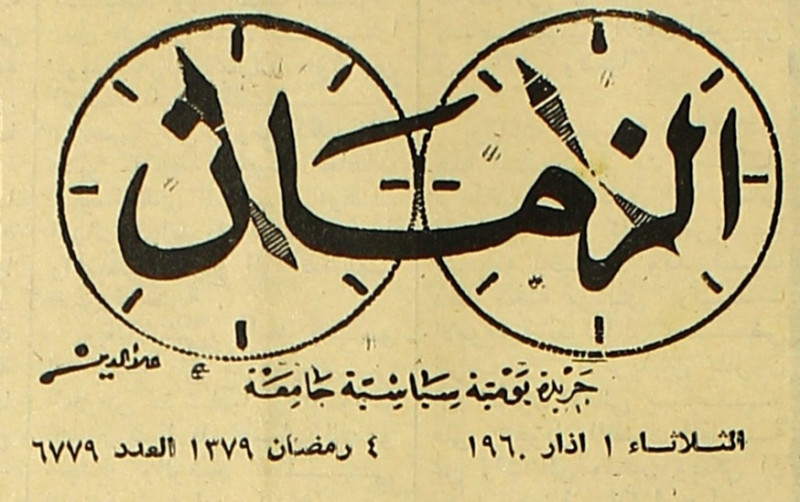 الزمان
علاء الدين
جريدة يومية سياسية جامعة
الثلاثاء ١ اذار ١٩٦٠ ٤ رمضان ١٣٧٩ العدد ٦٧٧٩